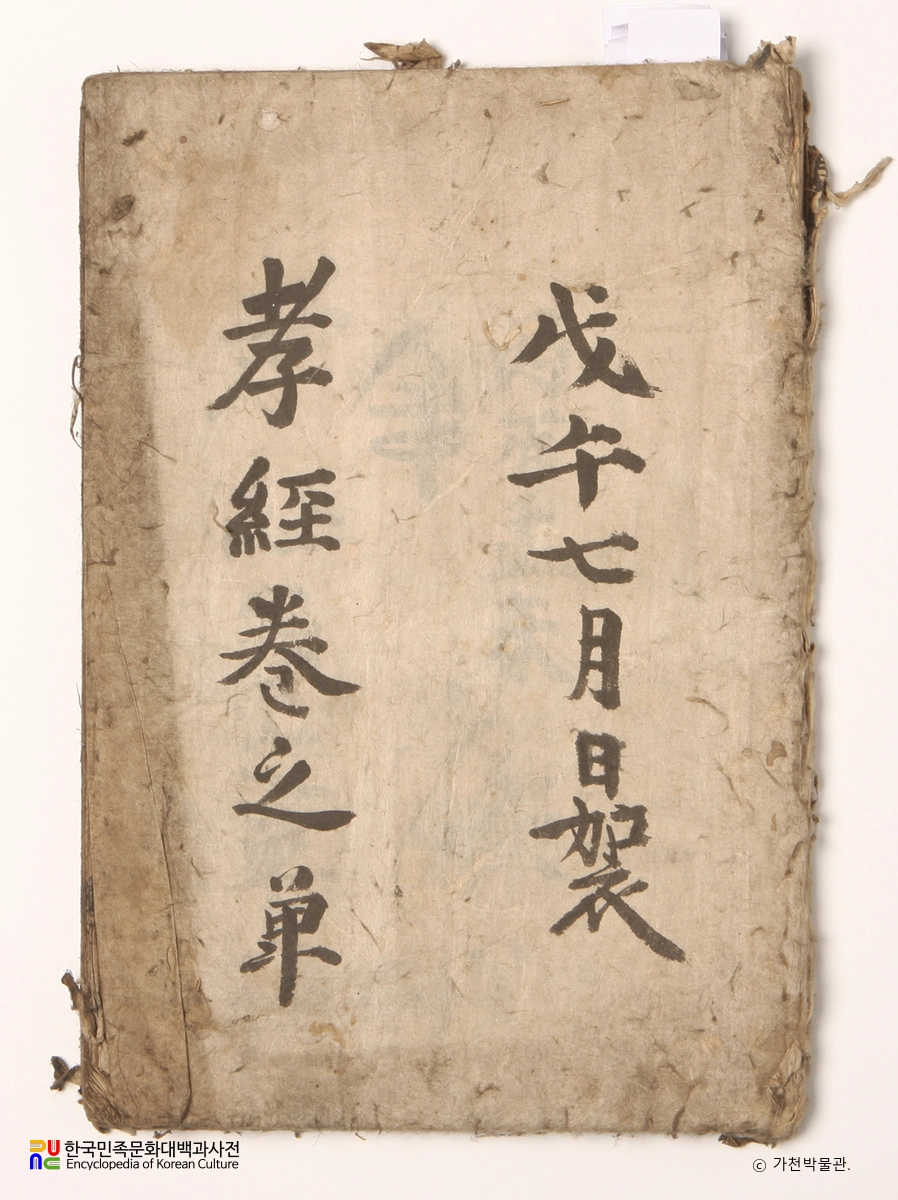 戊午七月日袈
孝經卷之單
한국민족문화대백과사전
Encyclopedia of Korean Culture
ⓒ 가천박물관.